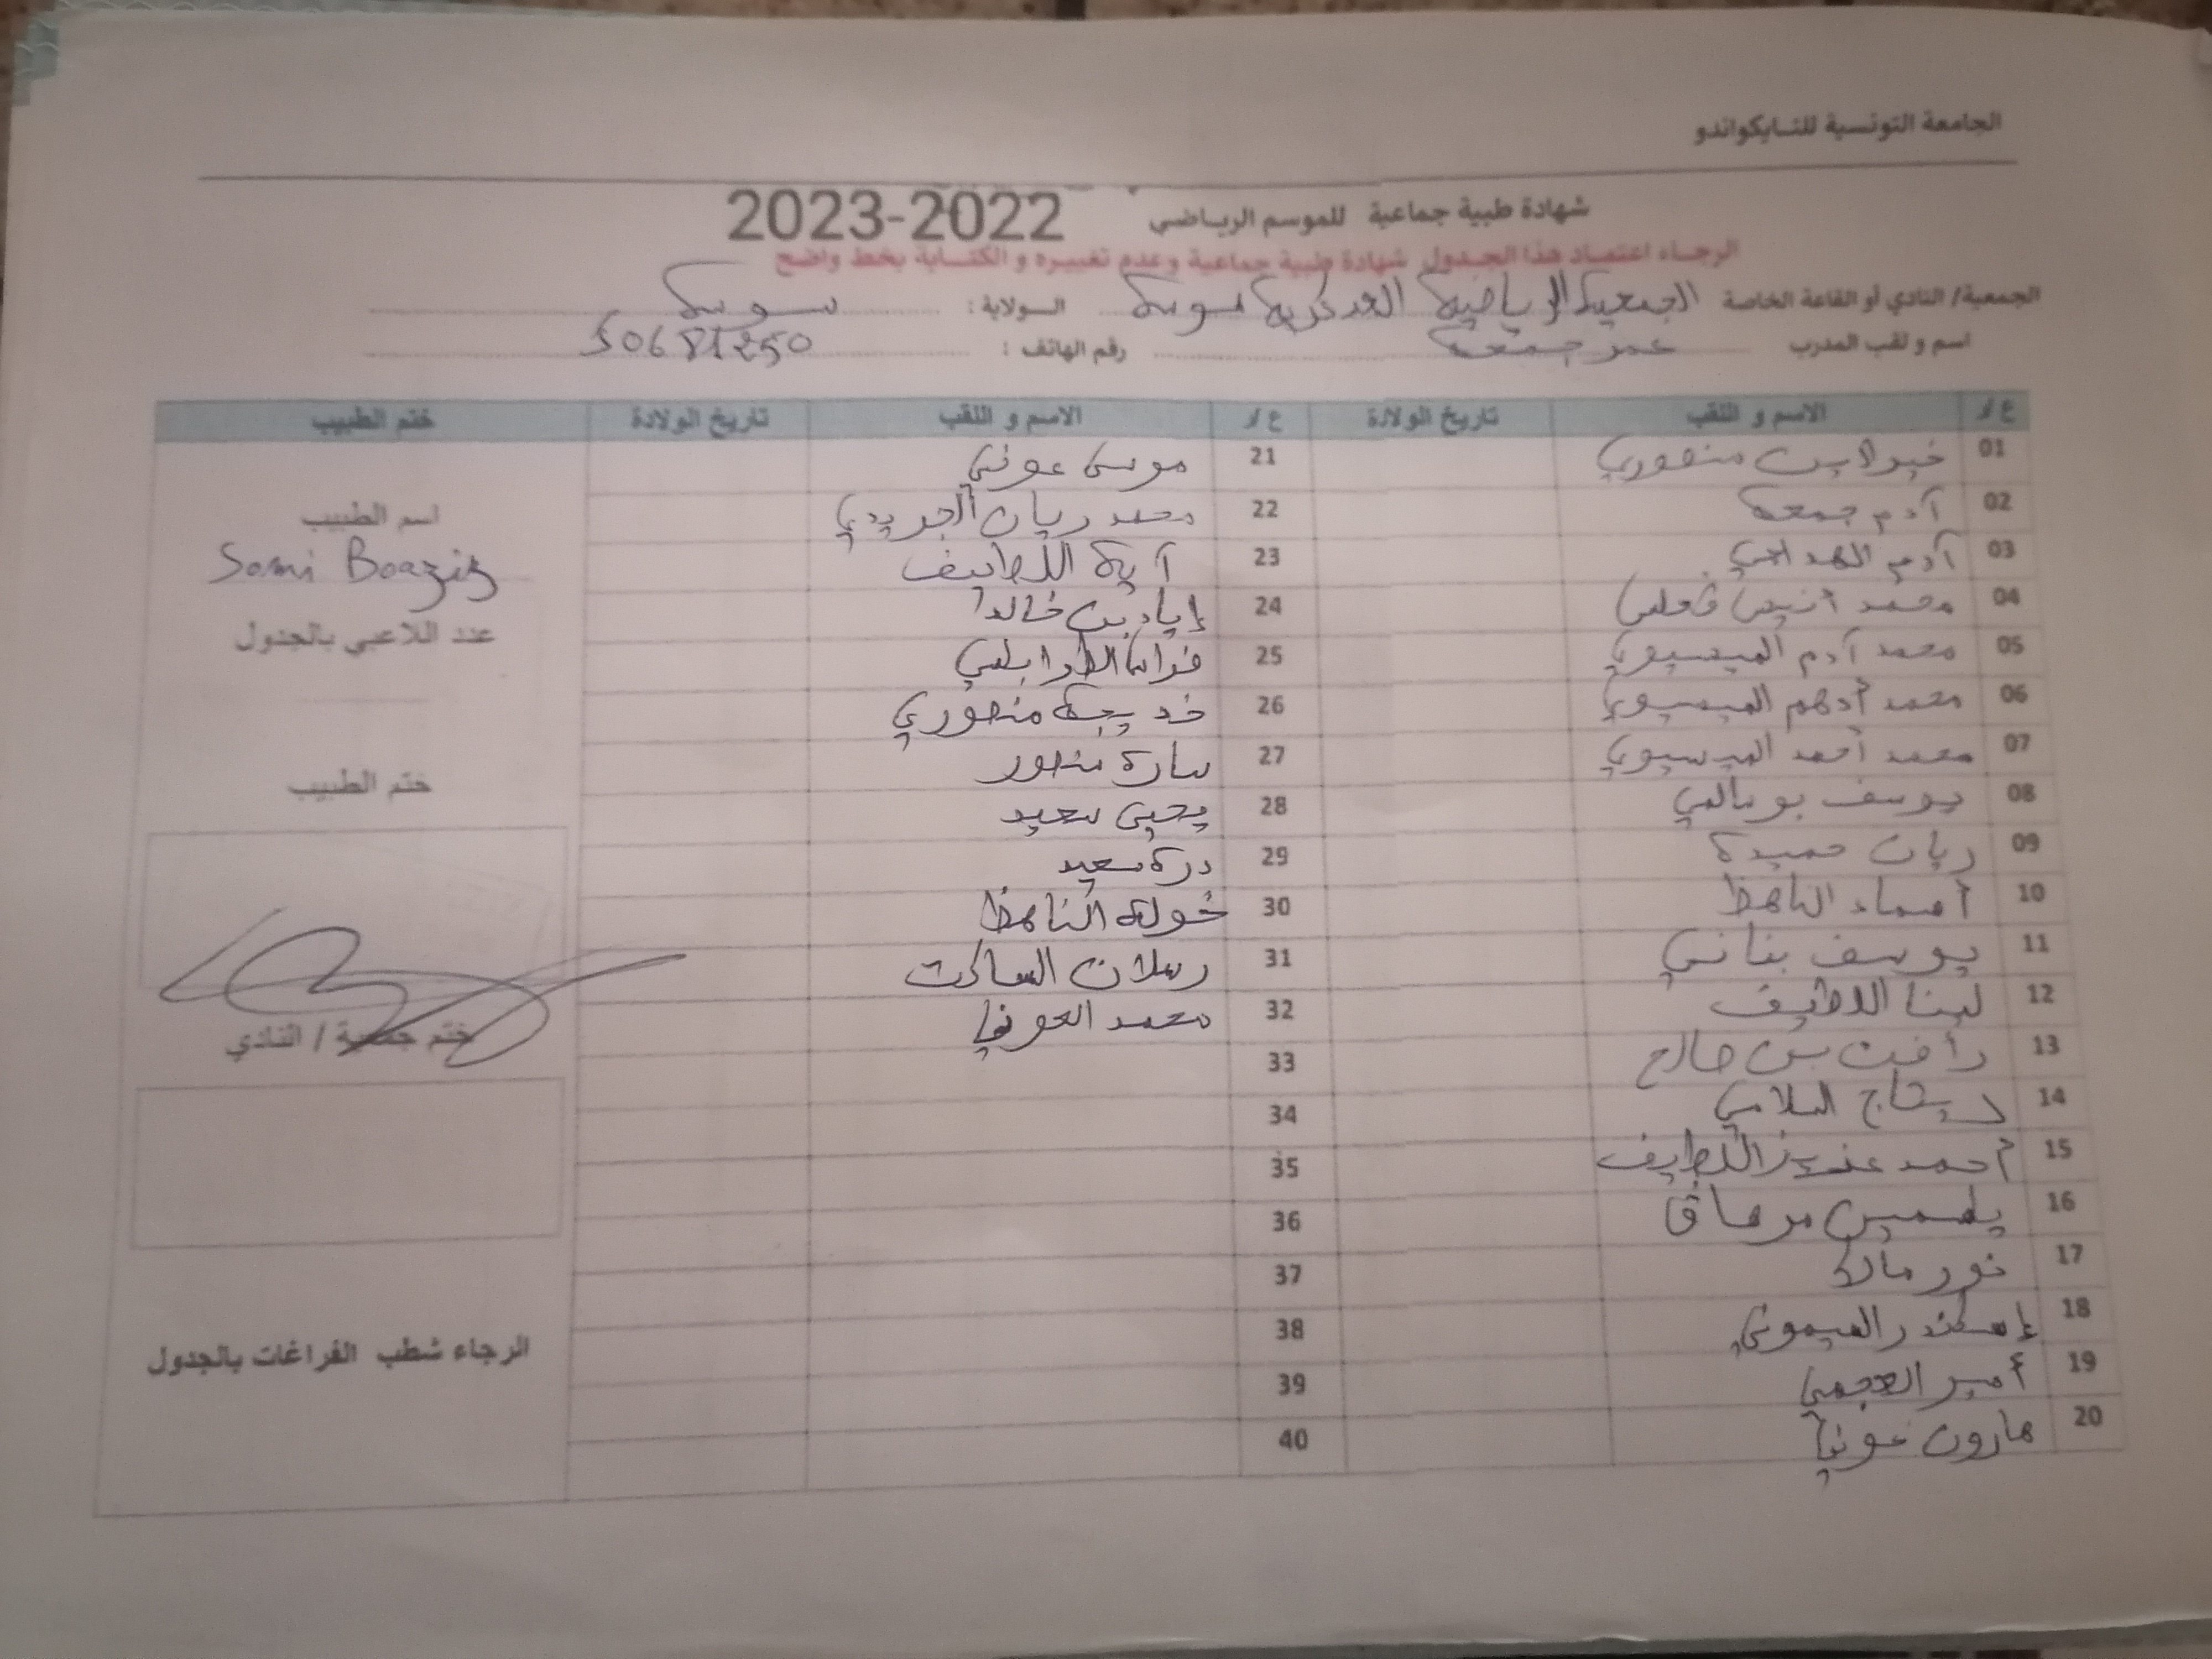 الجامعة التونسية للتايكواندو
شهادة طبية جماعية للموسم الرياضي 2022-2023
الرجاء اعتماد هذا الجدول شهادة طبية جماعية وعدم تغييره و الكتابة بخط واضح
الجمعية/ النادي أو القاعة الخاصة الجمعية الرياضية العسكرية سوسة الولاية : سوسة
اسم و لقب المدرب عمر جمعة رقم الهاتف :
ع/ر الاسم و اللقب تاريخ الولادة ع/ر الاسم و اللقب تاريخ الولادة ختم الطبيب
01 خير الدين منصوري 21 موسى عوني
02 آدم جمعة 22 محمد ريان الجريدي
03 آدم 23 آية اللطيف
04 محمد أنيس 24 إياد بن خالد
05 محمد آدم الميسيوي 25 الطرابلسي
06 محمد أدهم الميسيوي 26 خديجة منصوري
07 محمد أحمد الميسيوي 27 سارة منصور
08 يوسف بوسالمي 28 يحيى سعيد
09 ريان حميدة 29 درة سعيد
10 أسماء الناهظ 30 خولة الناهظ
11 يوسف بناني 31 رسلان الساكت
12 لينا اللطيف 32 محمد العوني
13 رأفت بن صالح 33
14 ريتاج السلامي 34
15 أحمد عزيز اللطيف 35
16 ياسمين مرساق 36
17 نور مالك 37
18 إسكندر الميموني 38
19 أمير العجمي 39
20 هارون عوني 40
اسم الطبيب
Sami Boaziz
عدد اللاعبي بالجدول
ختم الطبيب
ختم جمعية / النادي
الرجاء شطب الفراغات بالجدول